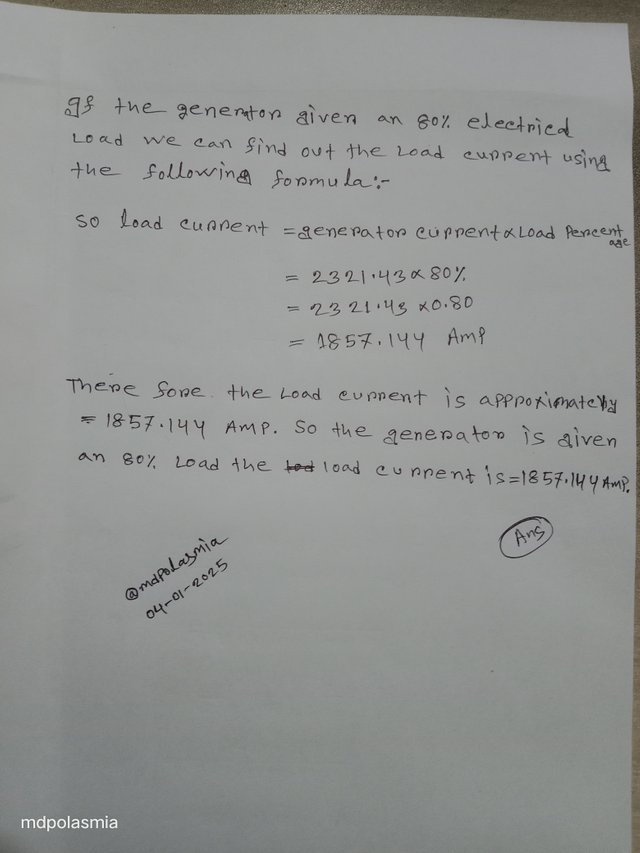 If the generator given an 80% electrical
Load we can find out the Load current using
the following formula:-
So load current = generator current × Load Percentage
= 2321.43 × 80%
= 2321.43 × 0.80
= 1857.144 Amp
There fore the Load current is approximately
= 1857.144 Amp. So the generator is given
an 80% Load the load current is = 1857.144 Amp.
Ans
@mdpolasmia
04-01-2025
mdpolasmia